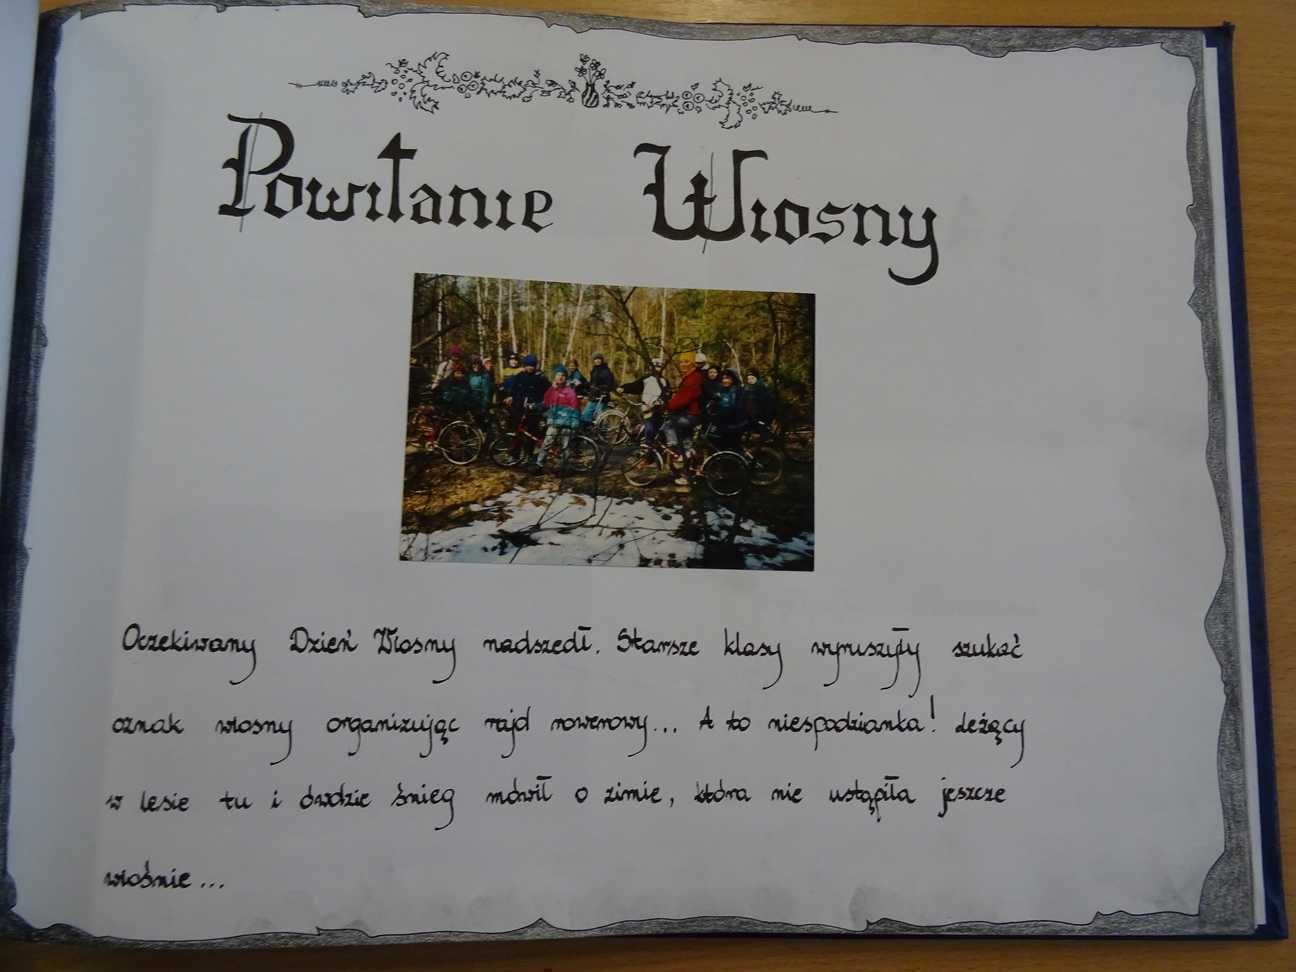 Powitanie Wiosny
Oczekiwany Dzień Wiosny nadszedł. Starsze klasy wyruszyły szukać
oznak wiosny organizując rajd rowerowy... A to niespodzianka! Leżący
w lesie tu i ówdzie śnieg mówił o zimie, która nie ustąpiła jeszcze
wiośnie...